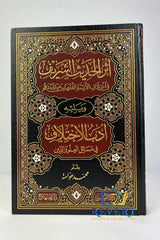 أثر الحديث الشريف
في اختلاف الأئمة الفقهاء رضي الله عنهم
ويليه
أدب الاختلاف
في مسائل العلم والدين
بقلم
محمد عوامة
REVERT